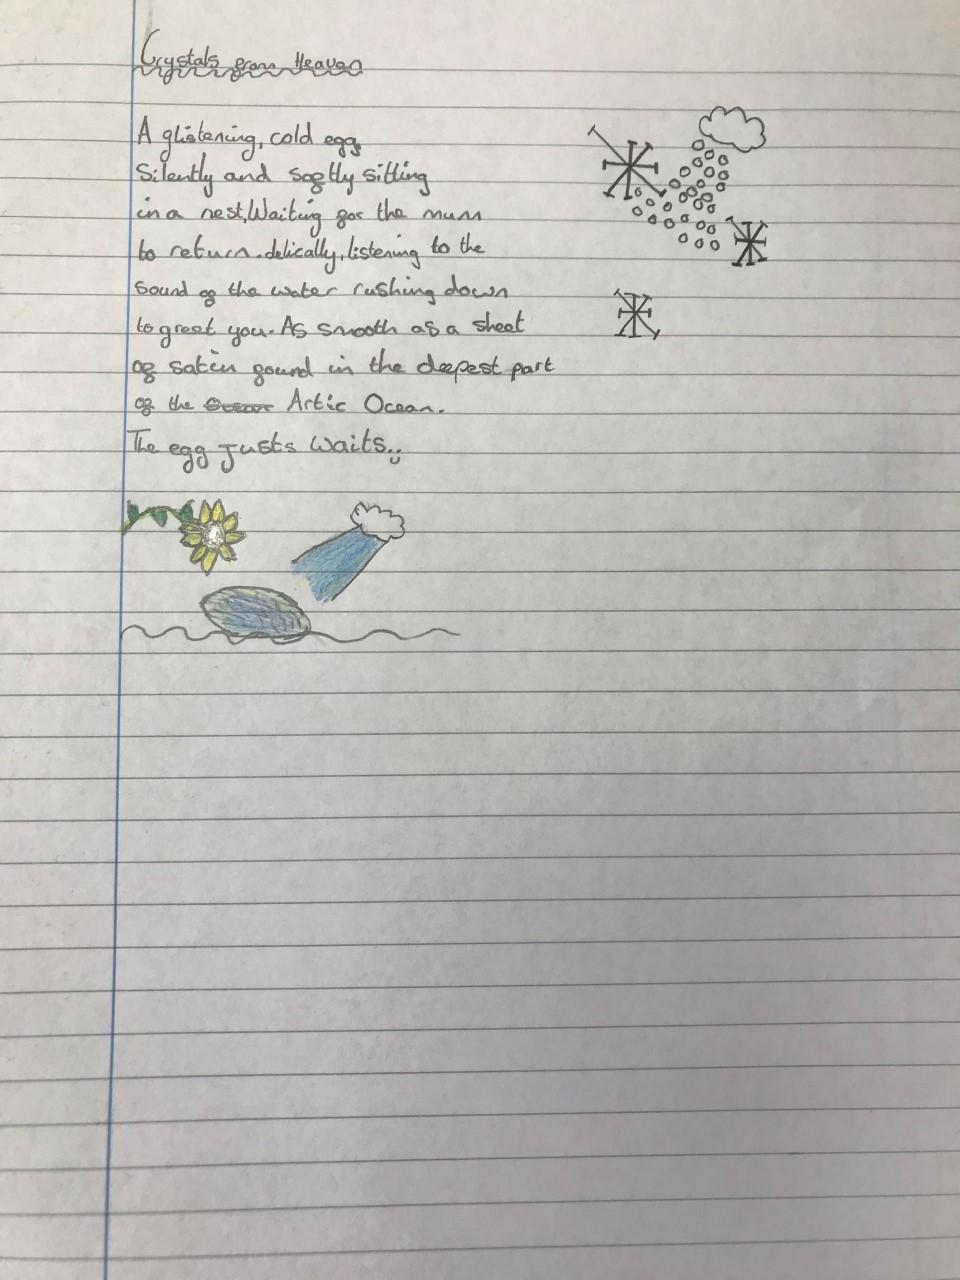 Crystals from Heaven
A glistening, cold egg
Silently and softly sitting
in a nest, Waiting for the mum
to return. delically, listening to the
sound of the water rushing down
to greet you. As smooth as a sheet
of satin found in the deepest part
of the Ocean Artic Ocean.
The egg justs waits..